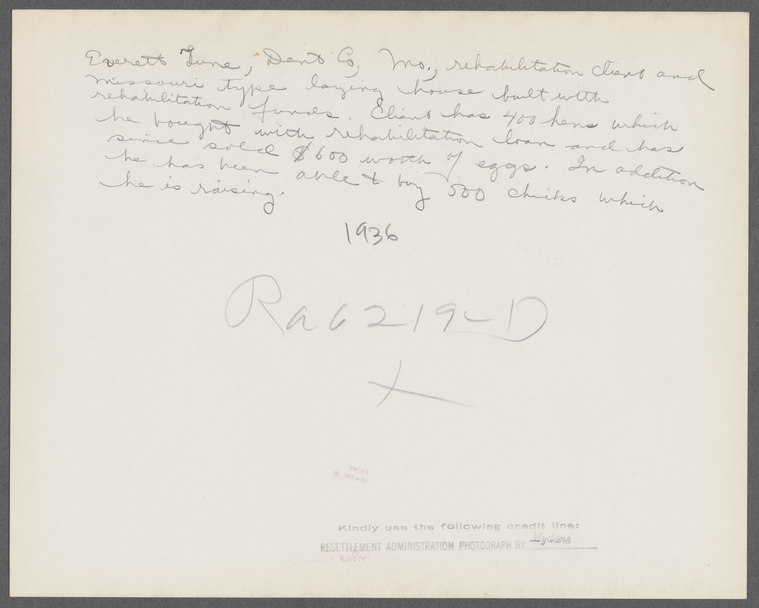 Everett June, Dent Co, Mo., rehabilitation client and
missouri type laying house built with
rehabilitation funds. Client has 400 hens which
he bought with rehabilitation loan and has
since sold $600 worth of eggs. In addition
he has been able to buy 500 chicks which
he is raising.
1936
Ra 6219-D
Kindly use the following credit line:
RESETTLEMENT ADMINISTRATION PHOTOGRAPH BY Mydans